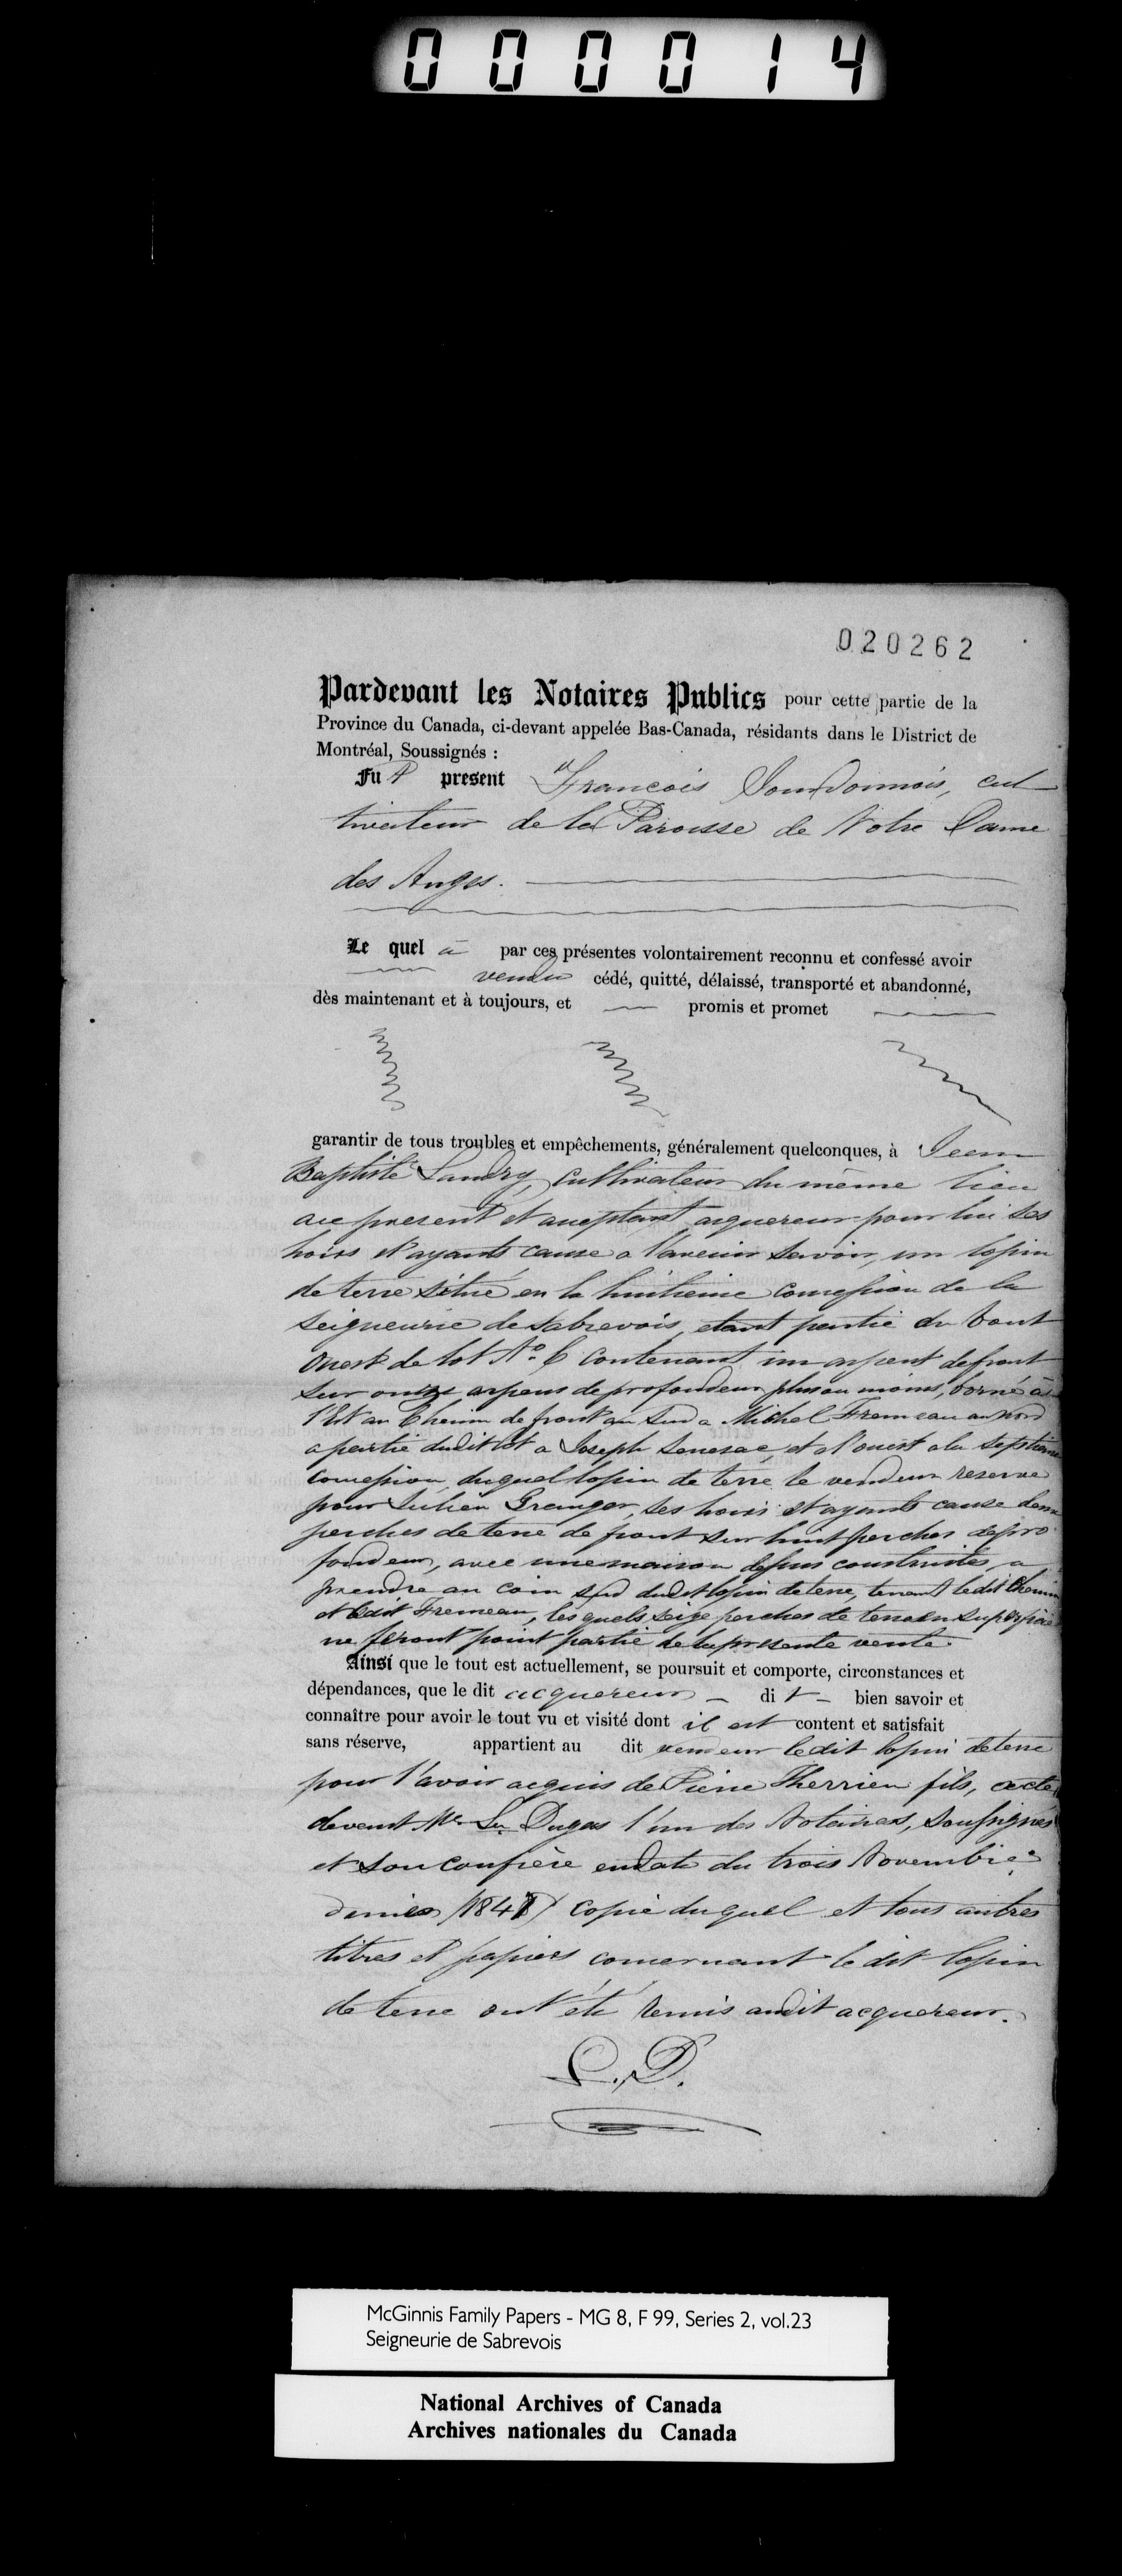 000014
020262
Pardevant les Notaires Publics pour cette partie de la
Province du Canada, ci-devant appelée Bas-Canada, résidants dans le District de
Montréal, Soussignés :
Fut present Francois , cul
tivateur de la Paroisse de Notre Dame
des Anges.
Le quel à par ces présentes volontairement reconnu et confessé avoir
vendu cédé, quitté, délaissé, transporté et abandonné,
dès maintenant et à toujours, et promis et promet
garantir de tous troubles et empêchements, généralement quelconques, à Jean
Baptiste Landry, cultivateur du même lieu
ace present et acceptant acquereur pour lui ses
hoirs et ayants cause a l'avenir savoir, un lopin
de terre situé en la huitieme concession de la
Seigneurie de Sabrevois, etant partie du bout
Ouest de lot No. 6 contenant un arpent de front
sur onze arpens de profondeur plus ou moins, borné à
l'Est au Chemin de front au Sud a Michel Fremeau au nord
a partie dudit lot a Joseph Senesac, et a l'ouest a la septieme
concession, duquel lopin de terre le vendeur reserve
pour Julien Grenger, ses hoirs et ayants cause deux
perches de terre de front sur huit perches de pro
fondeur, avec une maison dessus construites, a
prendre au coin sud dudit lopin de terre, tenant ledit Chemin
et ledit Fremeau, les quels seize perches de terre en superficie
ne feront point partie de la presente vente.
Ainsi que le tout est actuellement, se poursuit et comporte, circonstances et
dépendances, que le dit acquereur dit bien savoir et
connaître pour avoir le tout vu et visité dont il est content et satisfait
sans réserve, appartient au dit vendeur ledit lopin de terre
pour l'avoir acquis de Pierre Therrien fils, acte
devant Me. Dugas l'un des Notaires, soussignés
et son confrère en date du trois Novembre
dernier copie duquel et tous autres
titres et papiers concernant le dit lopin
de terre ont été remis audit acquereur.
C. D.
McGinnis Family Papers - MG 8, F 99, Series 2, vol.23
Seigneurie de Sabrevois
National Archives of Canada
Archives nationales du Canada